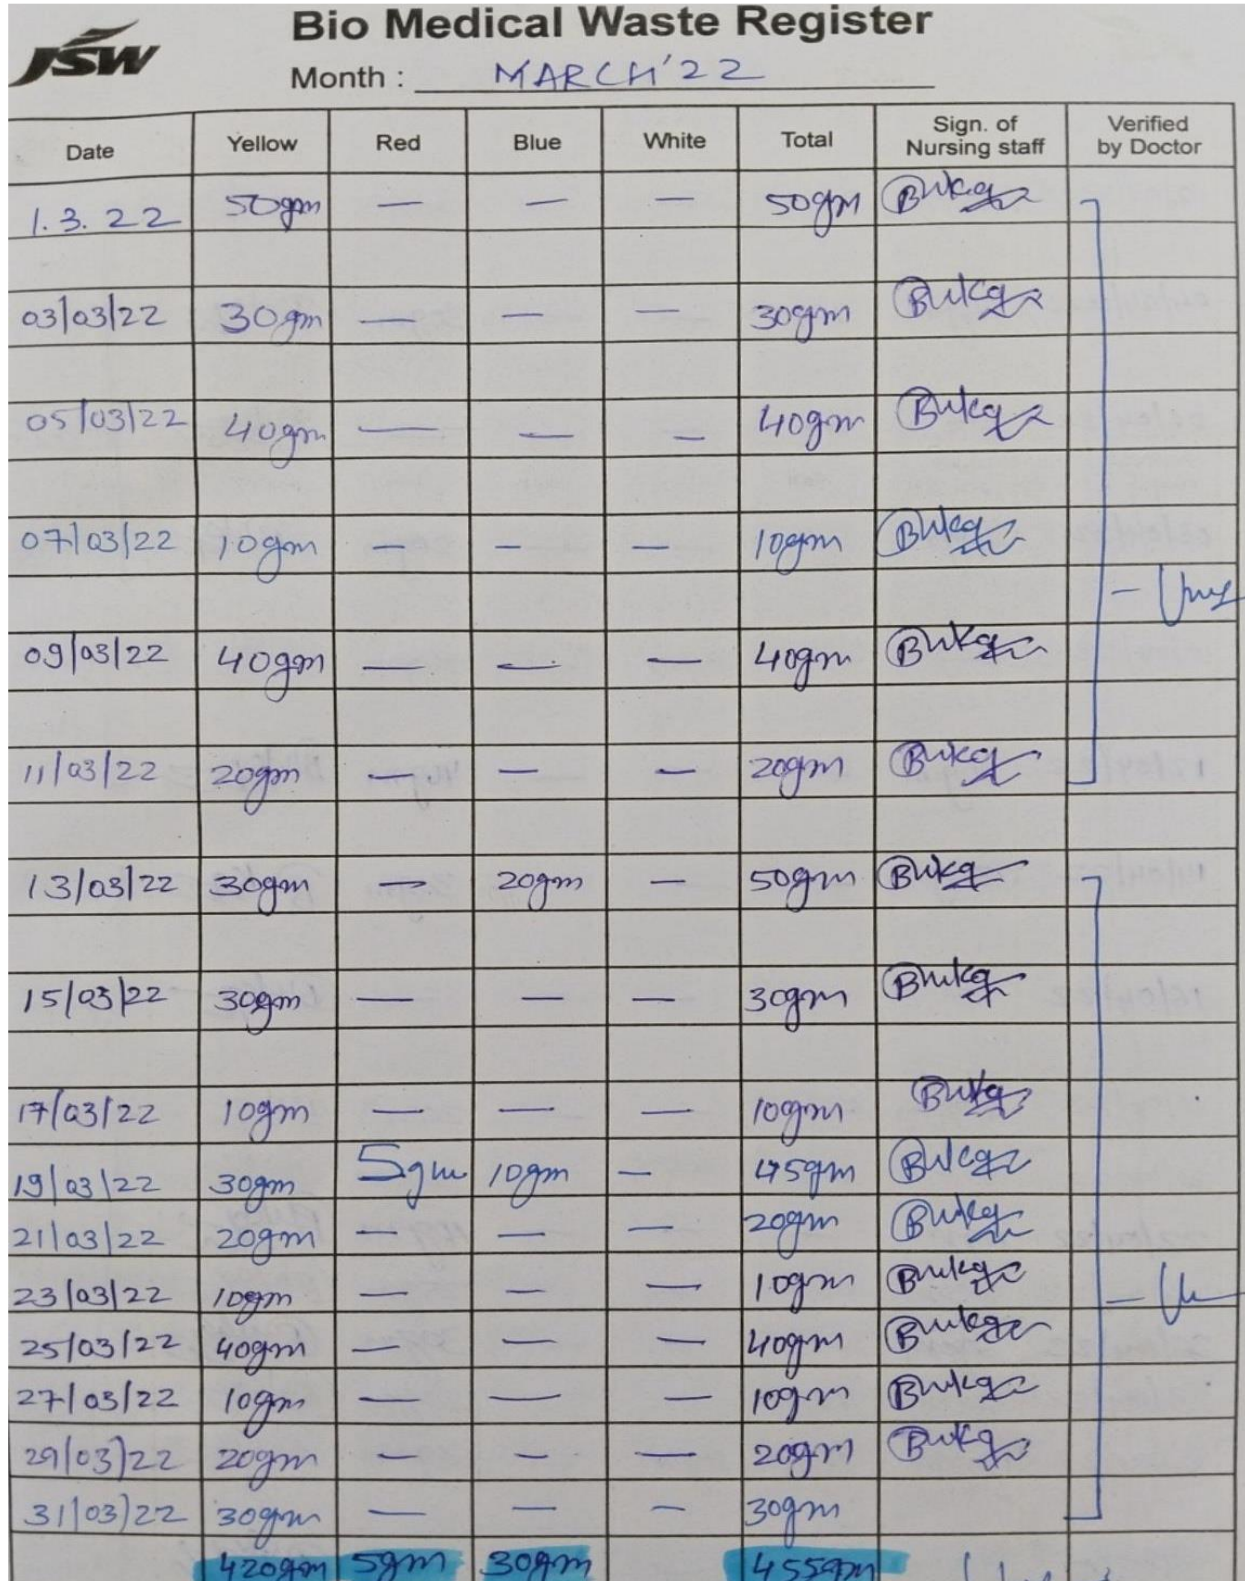 JSW
Bio Medical Waste Register
Month : MARCH'22
Date Yellow Red Blue White Total Sign. of Nursing staff Verified by Doctor
1.3.22 50gm — — — 50gm
03/03/22 30gm — — — 30gm
05/03/22 40gm — — — 40gm
07/03/22 10gm — — — 10gm
09/03/22 40gm — — — 40gm
11/03/22 20gm — — — 20gm
13/03/22 30gm — 20gm — 50gm
15/03/22 30gm — — — 30gm
17/03/22 10gm — — — 10gm
19/03/22 30gm 5gm 10gm — 45gm
21/03/22 20gm — — — 20gm
23/03/22 10gm — — — 10gm
25/03/22 40gm — — — 40gm
27/03/22 10gm — — — 10gm
29/03/22 20gm — — — 20gm
31/03/22 30gm — — — 30gm
420gm 5gm 30gm 455gm